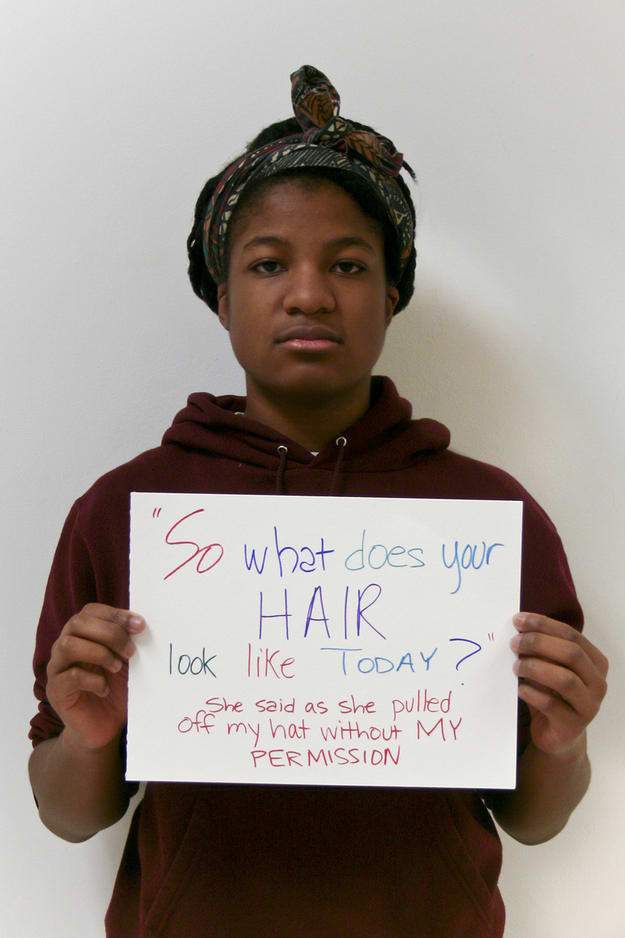 "So what does your
HAIR
look like TODAY?"
She said as she pulled
off my hat without MY
PERMISSION